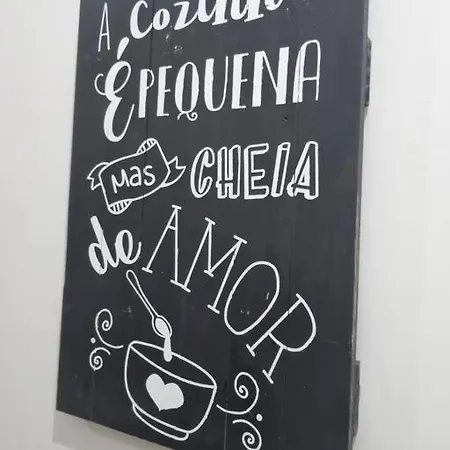 A Cozinha
É PEQUENA
MAS CHEIA
de AMOR